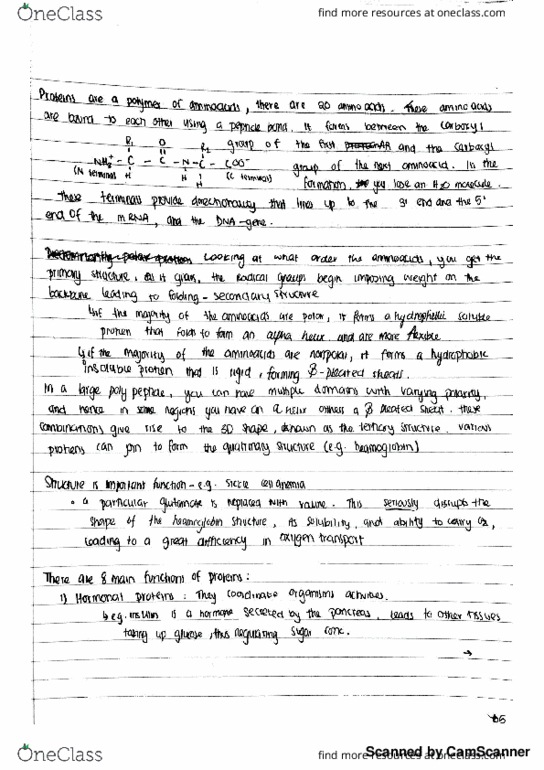 OneClass
find more resources at oneclass.com
Proteins are a polymer of aminoacids, there are 20 amino acids. These amino acids
are bound to each other using a peptide bond. It forms between the carboxyl
group of the first and the carboxyl
R1 O R2
NH3+ - C - C - N - C - COO-
group of the next aminoacid. In the
(N terminal H H H (C terminal)
formation, you lose an H2O molecule.
These terminals provide directionality that lines up to the 3' end and the 5'
end of the mRNA, and the DNA-gene.
Looking at what order the aminoacids, you get the
primary structure. As it grows, the Radical groups begin imposing weight on the
backbone leading to folding - secondary structure
↳ if the majority of the aminoacids are polar, it forms a hydrophilic soluble
protein that folds to form an alpha helix and are more flexible
↳ if the majority of the aminoacids are nonpolar, it forms a hydrophobic
insoluble protien that is rigid, forming β-pleated sheets.
In a large polypeptide, you can have multiple domains with varying polarity,
and hence in some regions you have an α helix others a β pleated sheet. These
combinations give rise to the 3D shape, known as the tertiary structure. Various
protiens can join to form the quaternary structure (e.g. heamoglobin)
Structure is important function - e.g. sickle cell anemia
• a particular glutamate is replaced with valine. This seriously disrupts the
shape of the heamoglobin structure, its solubility, and ability to carry O2,
leading to a great difficiency in oxygen transport
There are 8 main functions of proteins:
1) Hormonal proteins: They coordinate organisms activities.
↳ e.g. insulin is a hormone secreted by the pancreas, leads to other tissues
taking up glucose, thus regulating sugar conc.
→
OneClass
find more resources at oneclass.com
Scanned by CamScanner